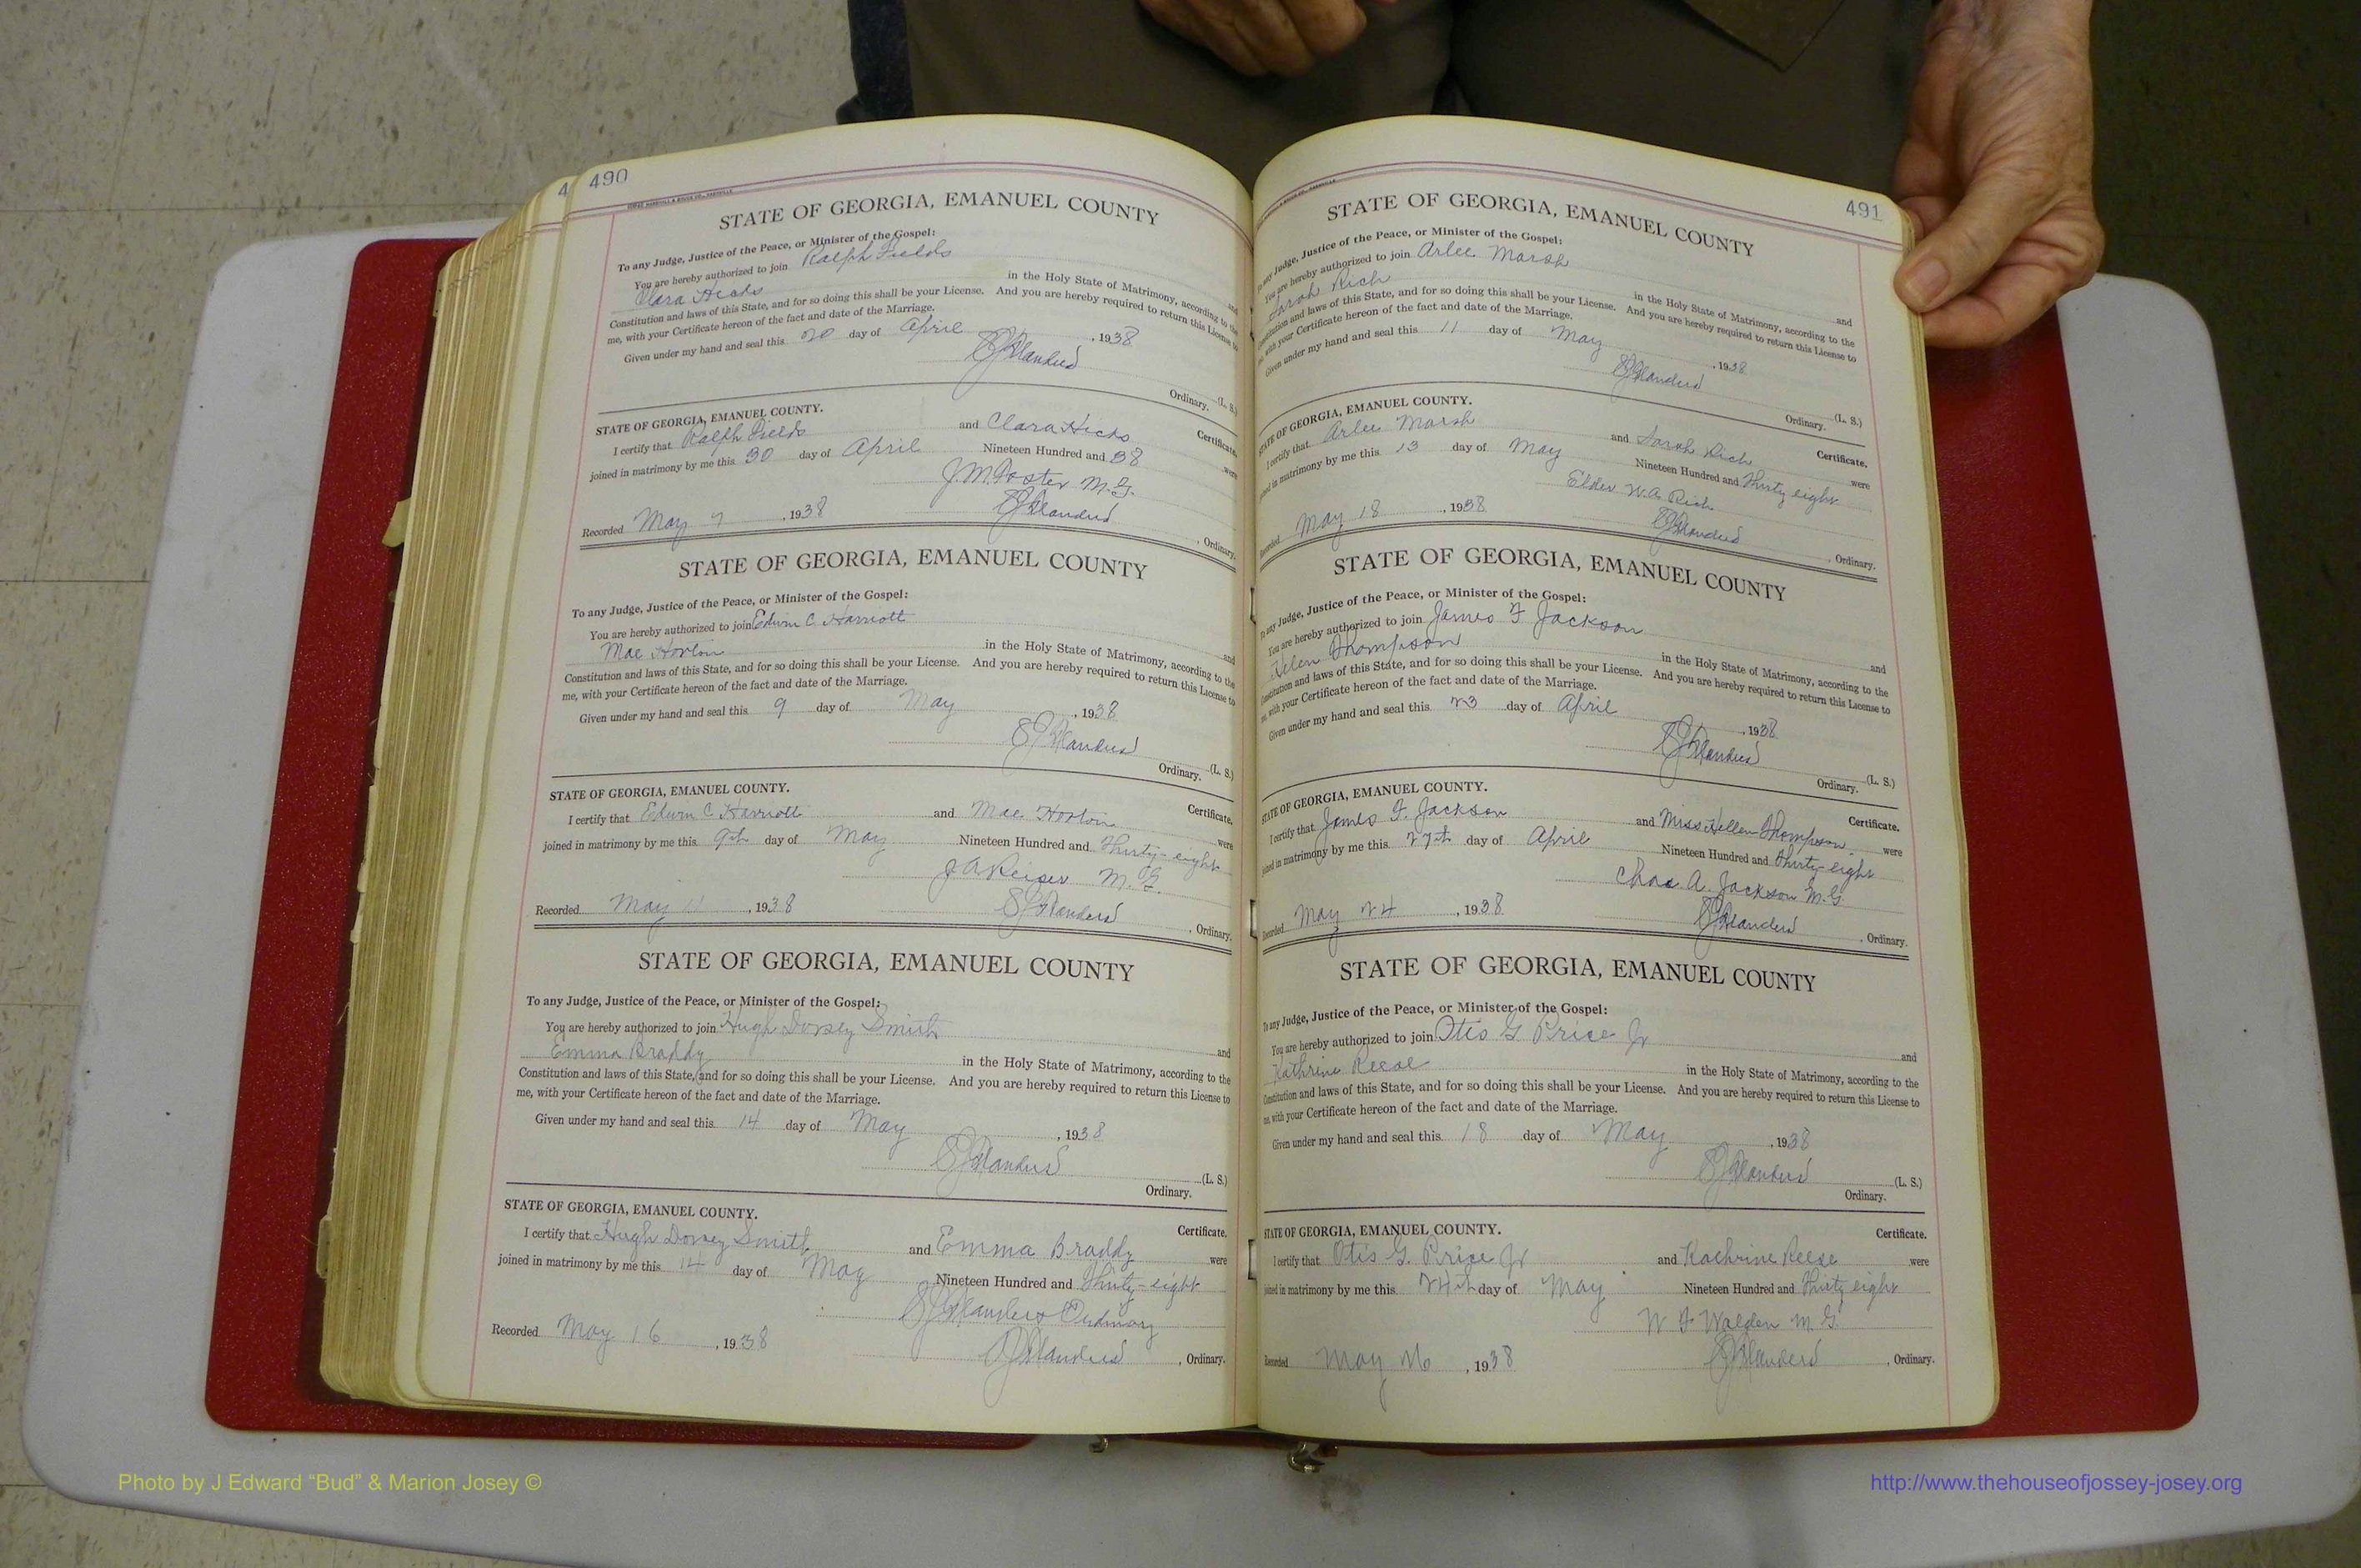 490
STATE OF GEORGIA, EMANUEL COUNTY
To any Judge, Justice of the Peace, or Minister of the Gospel:
You are hereby authorized to join Ralph Fields and
Clara Hicks in the Holy State of Matrimony, according to the
Constitution and laws of this State, and for so doing this shall be your License. And you are hereby required to return this License to
me, with your Certificate hereon of the fact and date of the Marriage.
Given under my hand and seal this 20 day of April, 1938
(L. S.)
Ordinary.
STATE OF GEORGIA, EMANUEL COUNTY.
Certificate.
I certify that Ralph Fields and Clara Hicks were
joined in matrimony by me this 30 day of April Nineteen Hundred and 38
J. M. Foster M.G.
Recorded May 7, 1938, Ordinary.
STATE OF GEORGIA, EMANUEL COUNTY
To any Judge, Justice of the Peace, or Minister of the Gospel:
You are hereby authorized to join Edwin C. Harriott and
Mae Horton in the Holy State of Matrimony, according to the
Constitution and laws of this State, and for so doing this shall be your License. And you are hereby required to return this License to
me, with your Certificate hereon of the fact and date of the Marriage.
Given under my hand and seal this 9 day of May, 1938
(L. S.)
Ordinary.
STATE OF GEORGIA, EMANUEL COUNTY.
Certificate.
I certify that Edwin C. Harriott and Mae Horton were
joined in matrimony by me this 9th day of May Nineteen Hundred and Thirty-eight
J A Reiser M.G.
Recorded May 11, 1938, Ordinary.
STATE OF GEORGIA, EMANUEL COUNTY
To any Judge, Justice of the Peace, or Minister of the Gospel:
You are hereby authorized to join Hugh Dorsey Smith and
Emma Braddy in the Holy State of Matrimony, according to the
Constitution and laws of this State, and for so doing this shall be your License. And you are hereby required to return this License to
me, with your Certificate hereon of the fact and date of the Marriage.
Given under my hand and seal this 14 day of May, 1938
(L. S.)
Ordinary.
STATE OF GEORGIA, EMANUEL COUNTY.
Certificate.
I certify that Hugh Dorsey Smith and Emma Braddy were
joined in matrimony by me this 14 day of May Nineteen Hundred and Thirty-eight
Flanders Ordinary
Recorded May 16, 1938, Ordinary.
491
STATE OF GEORGIA, EMANUEL COUNTY
any Judge, Justice of the Peace, or Minister of the Gospel:
You are hereby authorized to join Arlee Marsh and
Sarah Rich in the Holy State of Matrimony, according to the
Constitution and laws of this State, and for so doing this shall be your License. And you are hereby required to return this License to
me, with your Certificate hereon of the fact and date of the Marriage.
Given under my hand and seal this 11 day of May, 1938
(L. S.)
Ordinary.
STATE OF GEORGIA, EMANUEL COUNTY.
Certificate.
I certify that Arlee Marsh and Sarah Rich were
joined in matrimony by me this 13 day of May Nineteen Hundred and Thirty eight
Elder W.A. Rich
Recorded May 18, 1938, Ordinary.
STATE OF GEORGIA, EMANUEL COUNTY
To any Judge, Justice of the Peace, or Minister of the Gospel:
You are hereby authorized to join James F Jackson and
Helen Thompson in the Holy State of Matrimony, according to the
Constitution and laws of this State, and for so doing this shall be your License. And you are hereby required to return this License to
me, with your Certificate hereon of the fact and date of the Marriage.
Given under my hand and seal this 23 day of April, 1938
(L. S.)
Ordinary.
STATE OF GEORGIA, EMANUEL COUNTY.
Certificate.
I certify that James F. Jackson and Miss Hellen Thompson were
joined in matrimony by me this 27th day of April Nineteen Hundred and Thirty-eight
Chas A. Jackson M.G.
Recorded May 24, 1938, Ordinary.
STATE OF GEORGIA, EMANUEL COUNTY
To any Judge, Justice of the Peace, or Minister of the Gospel:
You are hereby authorized to join Otis G Price Jr and
Kathrine Reese in the Holy State of Matrimony, according to the
Constitution and laws of this State, and for so doing this shall be your License. And you are hereby required to return this License to
me, with your Certificate hereon of the fact and date of the Marriage.
Given under my hand and seal this 18 day of May, 1938
(L. S.)
Ordinary.
STATE OF GEORGIA, EMANUEL COUNTY.
Certificate.
I certify that Otis G. Price Jr and Kathrine Reese were
joined in matrimony by me this 24th day of May Nineteen Hundred and Thirty eight
W F Walden M.G.
Recorded May 26, 1938, Ordinary.
Photo by J Edward “Bud” & Marion Josey ©
http://www.thehouseofjossey-josey.org